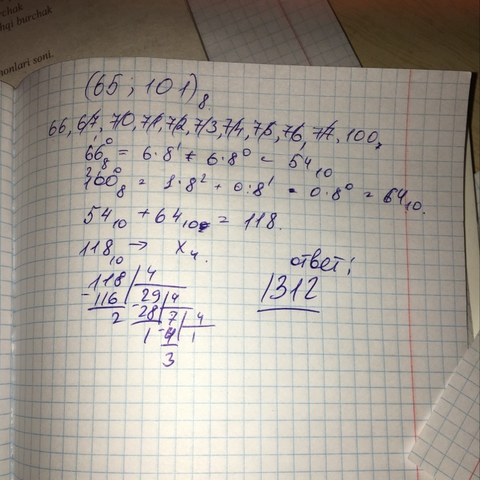 chak
hqi burchak
onlari soni.
(65 ; 101)₈
66, 67, 70, 71, 72, 73, 74, 75, 76, 77, 100,
66₈ = 6·8¹ + 6·8⁰ = 54₁₀
100₈ = 1·8² + 0·8¹ + 0·8⁰ = 64₁₀.
54₁₀ + 64₁₀ = 118.
118₁₀ → x₄.
ответ:
1312
118 4
-116 29 4
2 -28 7 4
1 -4 1
3